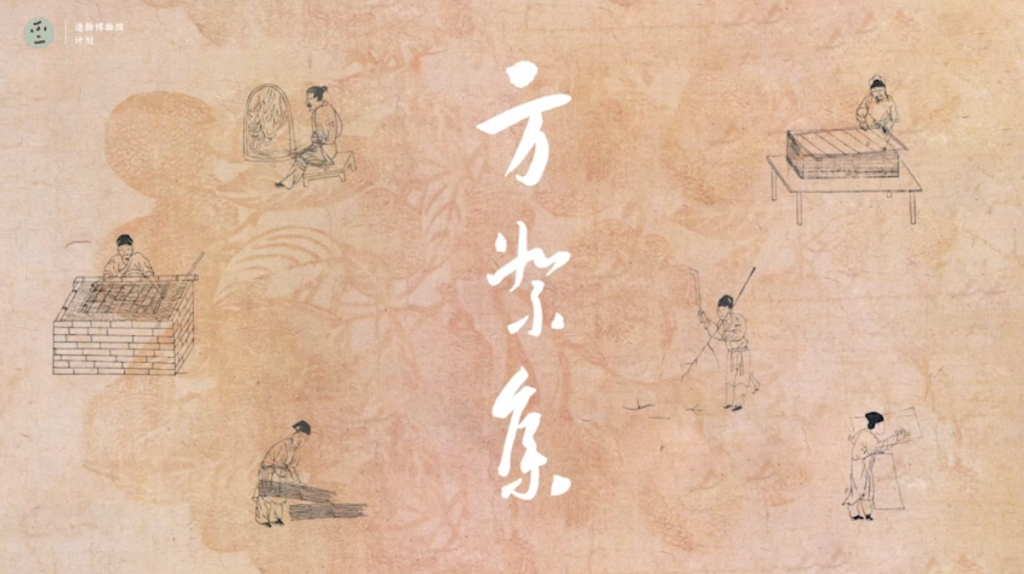 造物博物馆
计划
方絮集